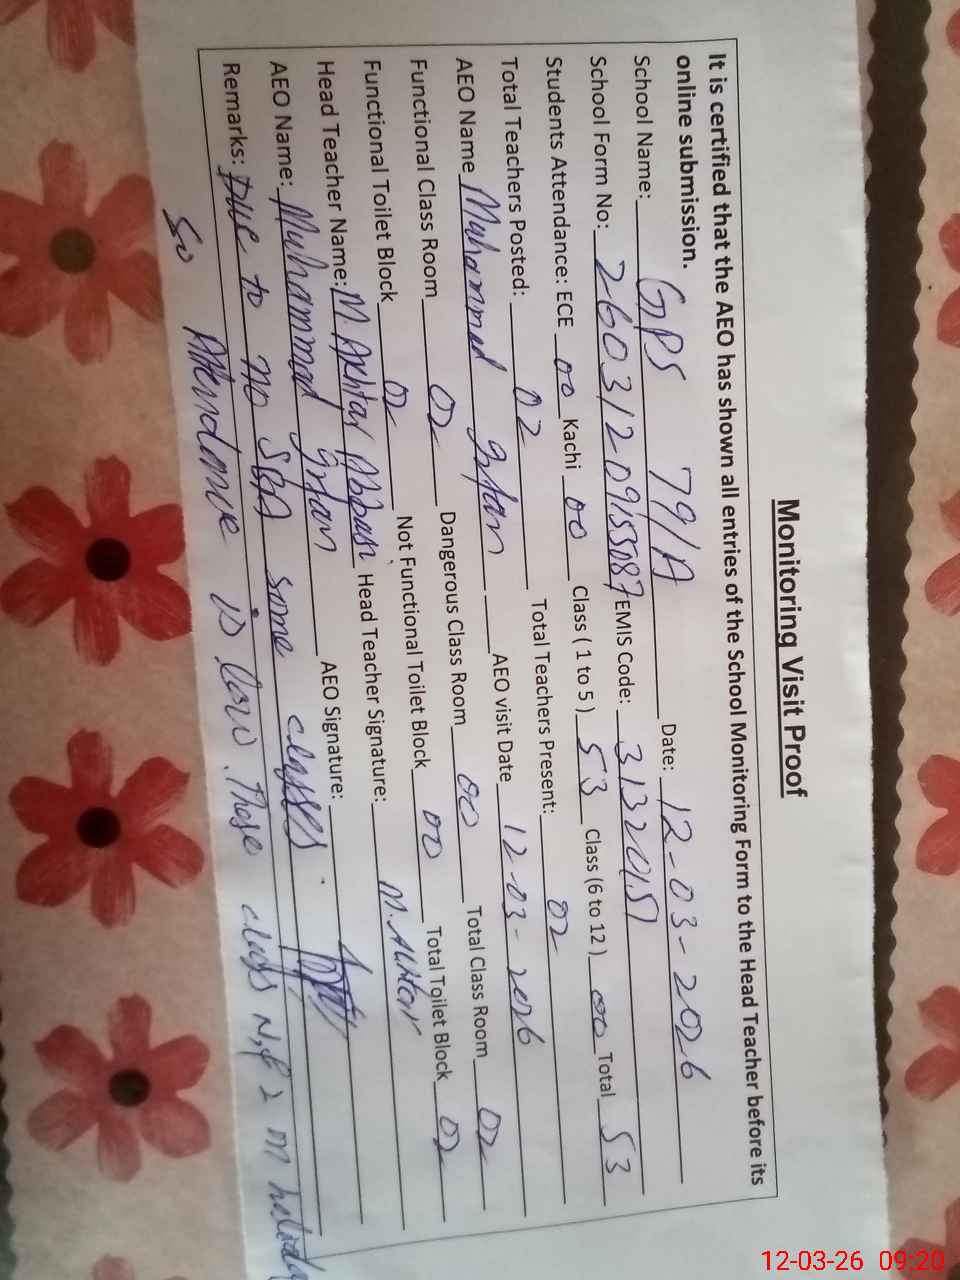 Monitoring Visit Proof
It is certified that the AEO has shown all entries of the School Monitoring Form to the Head Teacher before its
online submission.
School Name: GPS 79/A Date: 12-03-2026
School Form No: 2603120955087 EMIS Code: 31320151
Students Attendance: ECE 00 Kachi 00 Class ( 1 to 5 ) 53 Class (6 to 12 ) 00 Total 53
Total Teachers Posted: 02 Total Teachers Present: 02
AEO Name Muhammad Irfan AEO visit Date 12-03-2026
Functional Class Room 02 Dangerous Class Room 00 Total Class Room 02
Functional Toilet Block 02 Not Functional Toilet Block 00 Total Toilet Block 02
Head Teacher Name: M. Akhtar Abbas Head Teacher Signature: M. Akhtar
AEO Name: Muhammad Irfan AEO Signature:
Remarks: Due to no some classes.
So Atendance is low. These class N, & 2 in holiday
12-03-26 09:20